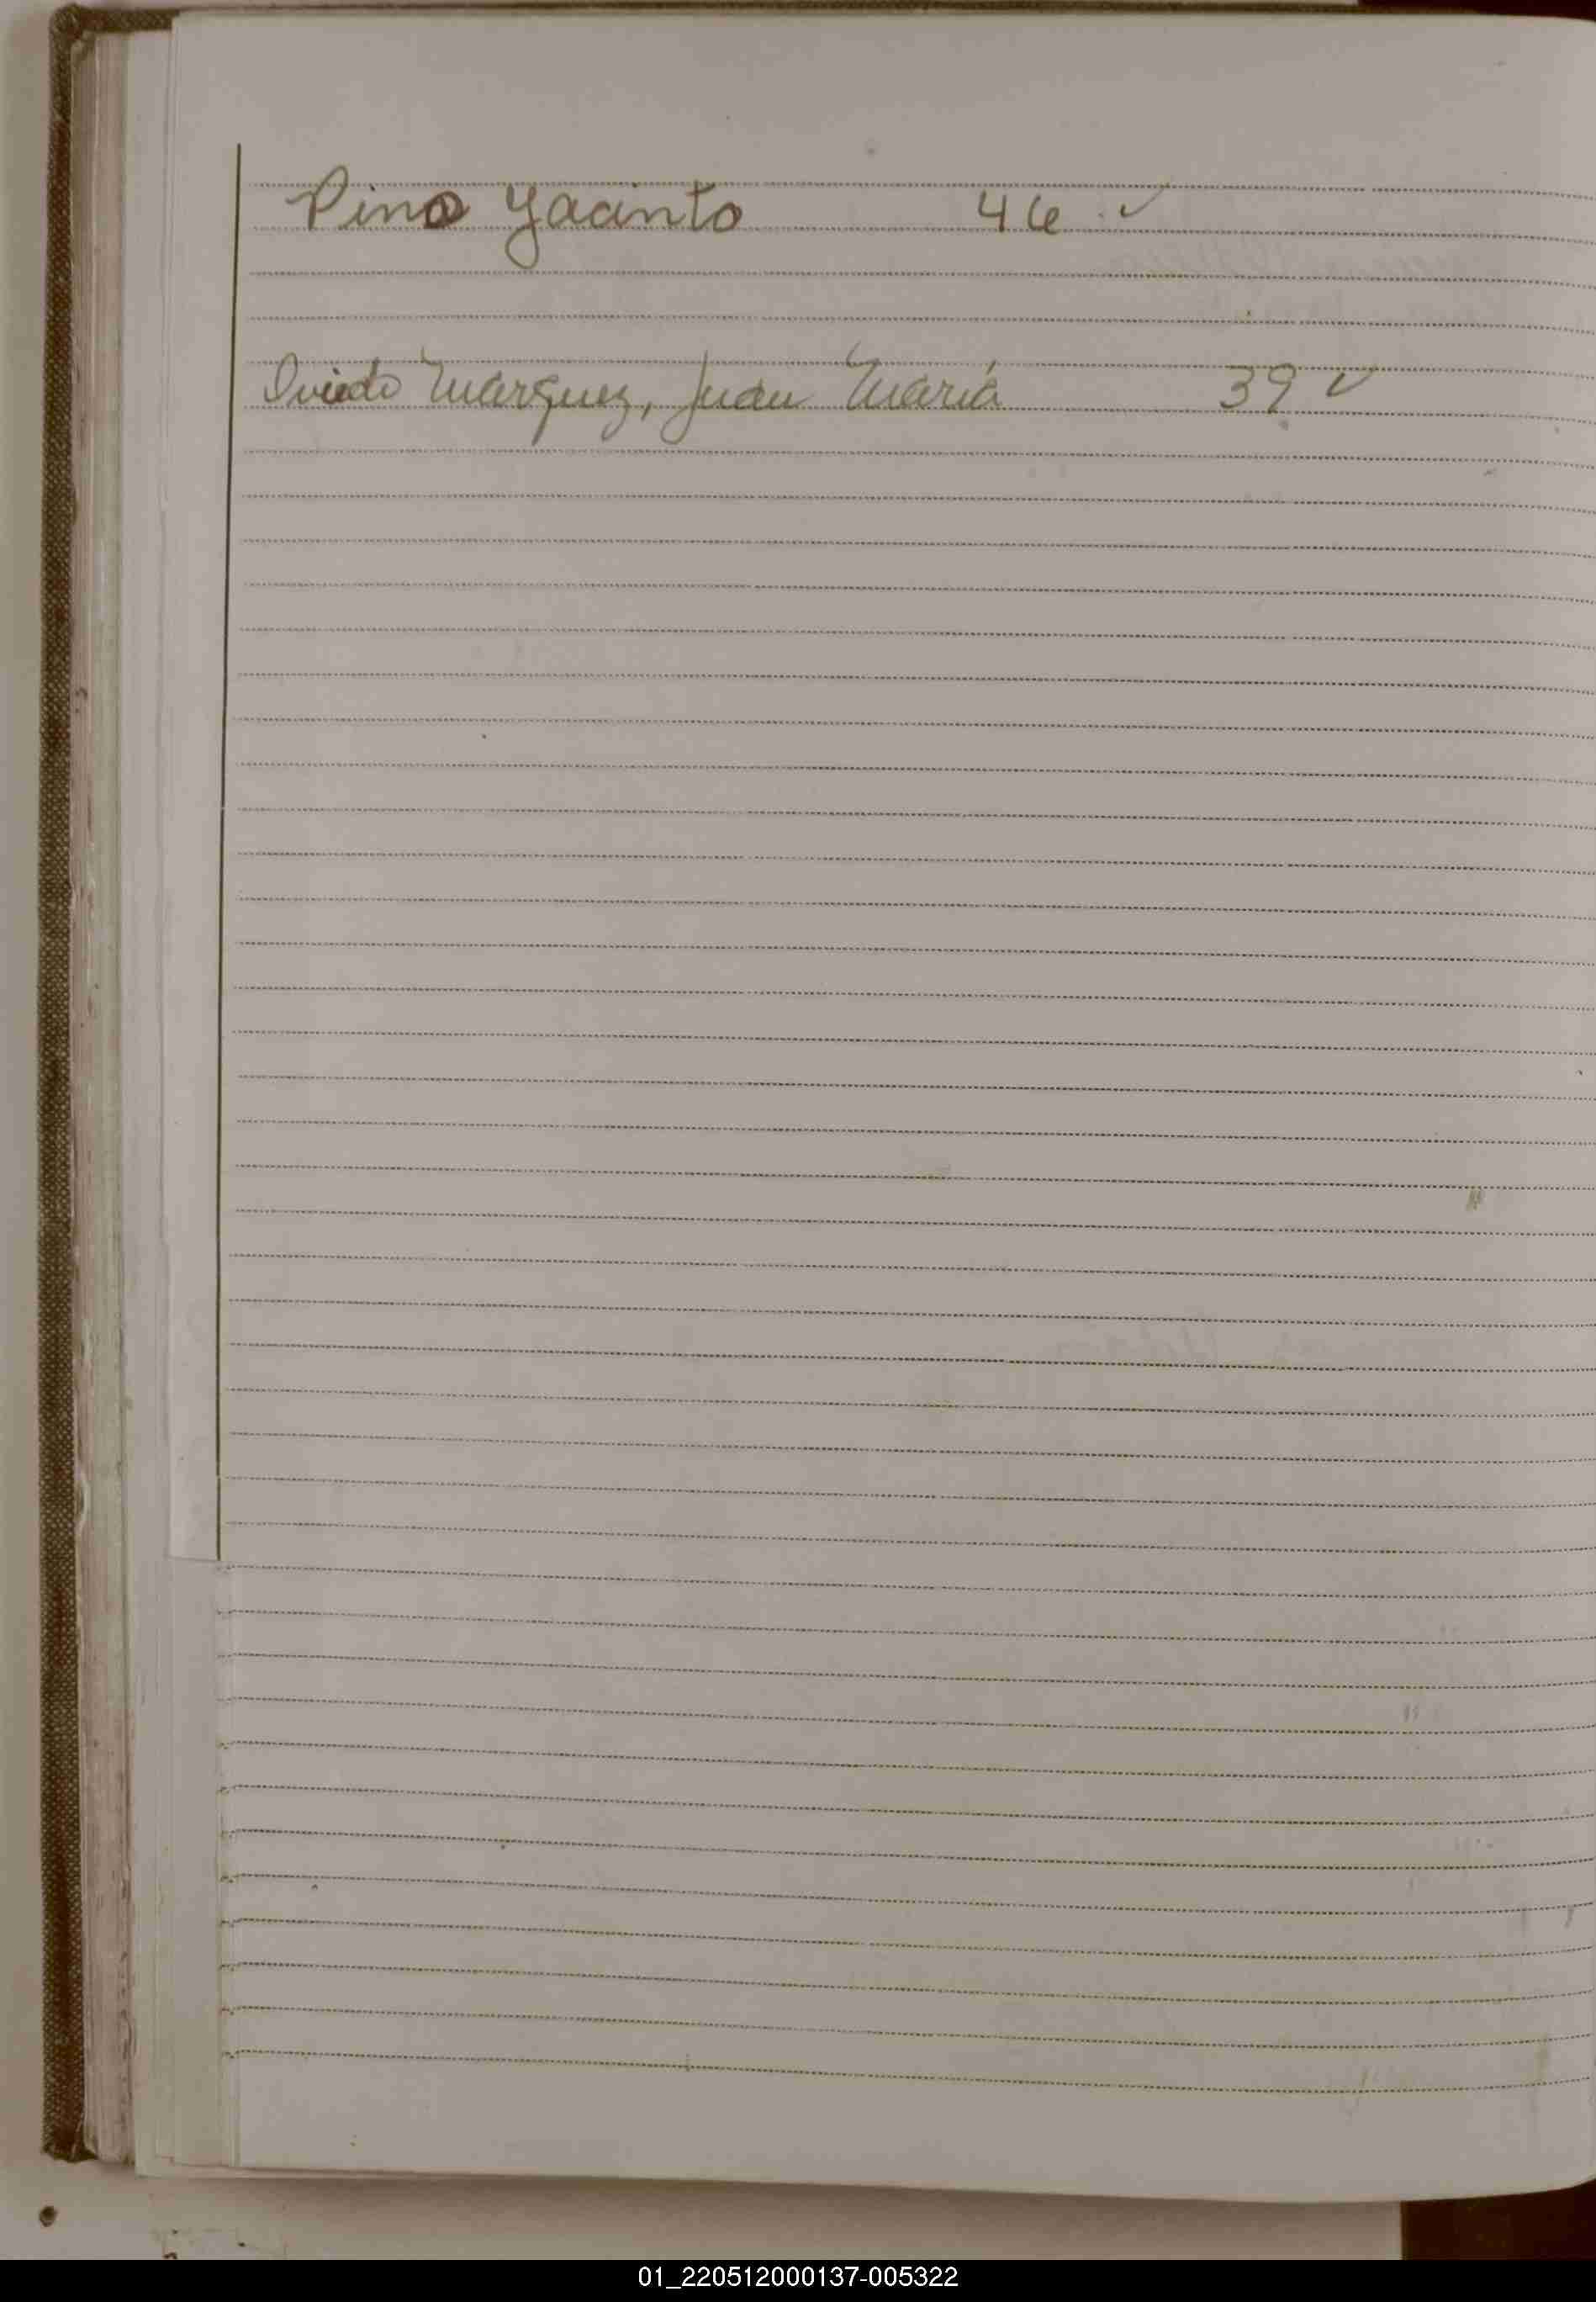 Pino Yacinto 46 ✓
Oviedo Marquez, Juan María 39 ✓
01_220512000137-005322